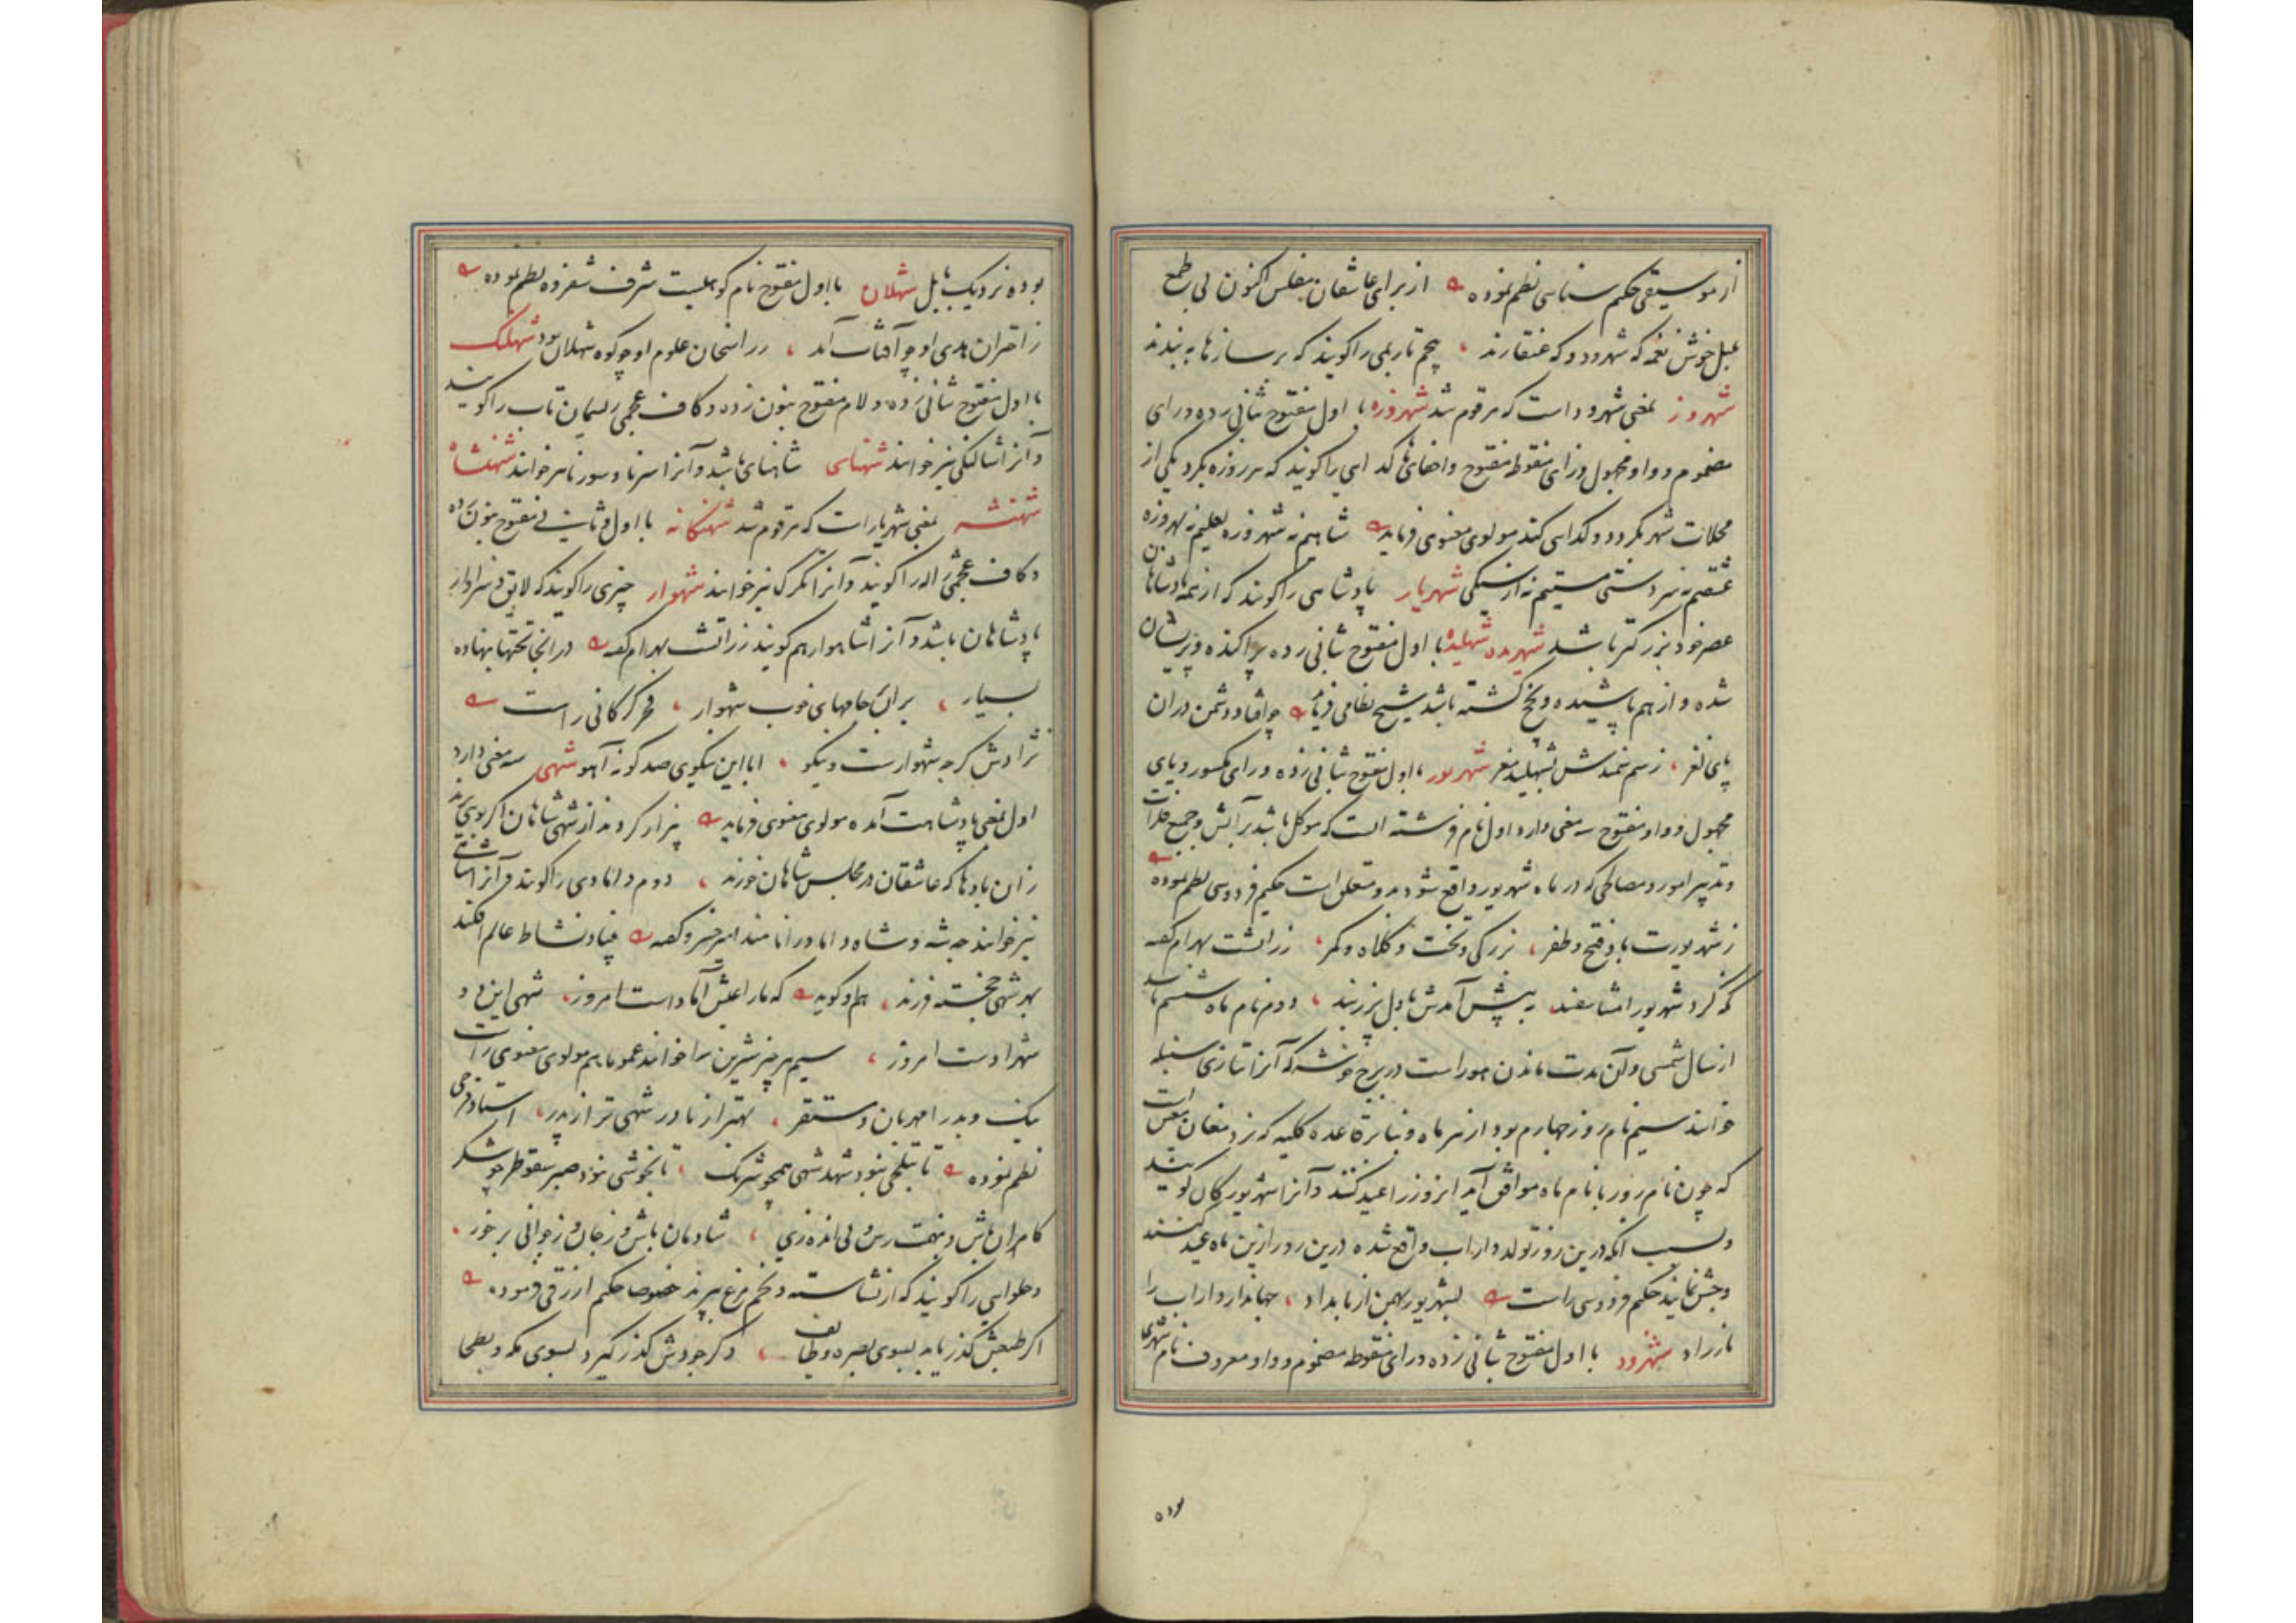 از موسیقی حکیم سنائی نظم نموده از برای عاشقان مفلس اکنون بی طمع
بلبل خوش نغمه که شهرود و که عنقا زند پنجم تار بمی را کویند که بر سازها به بندند
شهروز بمعنی شهرود است که مرقوم شد شهروزه با اول مفتوح بثانی زده و رای
مضموم و واو مجهول و زای منقوطه مفتوح و اخفای ها کدایی را کویند که هر روزه بکرد یکی از
محلات شهر بکردد و کدایی کند مولوی معنوی فرماید شاهیم نه شهروزه لعلیم نه پیروزه
عشقیم نه سردستی مستیم نه از سیکی شهریار پادشاهی را کویند که از همه پادشاهان
عصر خود بزرکتر باشد شهریده شهلیده با اول مفتوح بثانی زده پراکنده و پریشان
شده و از هم پاشیده و پخ کشته باشد شیخ نظامی فرماید چو افتاد دشمن در ان
پای لغز ز سم سمندش شهلید مغز شهریور با اول مفتوح بثانی زده و رای مکسور و یای
مجهول و واو مفتوح سه معنی دارد اول نام فرشته است که موکل باشد بر آتش و جمیع فلزات
و تدبیر امور و مصالحی که در ماه شهریور واقع شود بدو متعلق است حکیم فردوسی نظم نموده
ز شهریورت باد فتح و ظفر بزرکی و تخت و کلاه و کمر زراتشت بهرام کفته
که کرد شهریور امشاسفند به پیش آمدش با دل پزرند دوم نام ماه ششم باشد
از سال شمسی و آن مدت ماندن هور است در برج خوشه که آنرا بتازی سنبله
خوانند سیم نام روز چهارم بود از هر ماه و بنا بر قاعده کلیه که نزد مغان مقرر است
که چون نام روز با نام ماه موافق آید انروز را عید کنند و آنرا شهریورکان کویند
و بسبب انکه درین روز تولد داراب واقع شده درین روز ازین ماه عید کنند
و جشن نمایند حکیم فردوسی راست بشهریور بهمن از بامداد جهاندار داراب را
بار داد شهرود با اول مفتوح بثانی زده و رای منقوطه مضموم و واو معروف نام شهری
بوده
بوده نزدیک بابل شهلان با اول مفتوح نام کوهیست شرف شفروه نظم نموده
ز اختران هدی او چو آفتاب آمد در امتحان علوم او چو کوه شهلان بود شهلنک
با اول مفتوح بثانی زده و لام مفتوح بنون زده و کاف عجمی ریسمان تاب را کویند
و آنرا شالنکی نیز خوانند شهنای شاهنای باشد و آنرا سرنا و سورنا نیز خوانند شهنشاه
شهنشه بمعنی شهریار است که مرقوم شد شهنکانه با اول و ثانی مفتوح بنون زده
و کاف عجمی ژاله را کویند و آنرا تکرک نیز خوانند شهوار چیزی را کویند که لایق و سزاوار
پادشاهان باشد و آنرا شاهوار هم کویند زراتشت بهرام کفته در انجا تختها بنهاده
بسیار بران جامهای خوب شهوار فخر کرکانی راست
نژادش کرچه شهوارست و نیکو ابا این نیکویی صد کونه آهو شهی سه معنی دارد
اول بمعنی پادشاهت آمده مولوی معنوی فرماید بیزار کردند از شهی شاهان اکر بویی برند
زان بادها که عاشقان در مجلس شاهان خورند دوم دامادی را کویند و آنرا شاهی
نیز خوانند چه شه و شاه داماد را نامند امیر خسرو کفته بنیاد نشاط عالم افکند
بهر شهی خجسته فرزند هم او کوید که ما را عیش آباد است امروز شهی این دو
شهزادست امروز سیم هر چیز شیرین را خوانند عموما هم مولوی معنوی راست
نیک و بد را مهربان و مستقر بهتر از مادر شهی تر از پدر استاد فرخی
نظم نموده تا بتلخی نبود شهد شهی همچو شرنک تا بخوشی نبود صبر سقوطر چو شکر
کامران باش و بنهت رس و بی انده زی شادمان باش و ز جان و ز جوانی بر خور
و حلوایی را کویند که از نشاسته و تخم مرغ بپزند خصوصا حکیم ازرقی فرموده
اکر طبعش کذر یابد بسوی بصره و طایف و کر جودش کذر کیرد بسوی مکه و بطحا